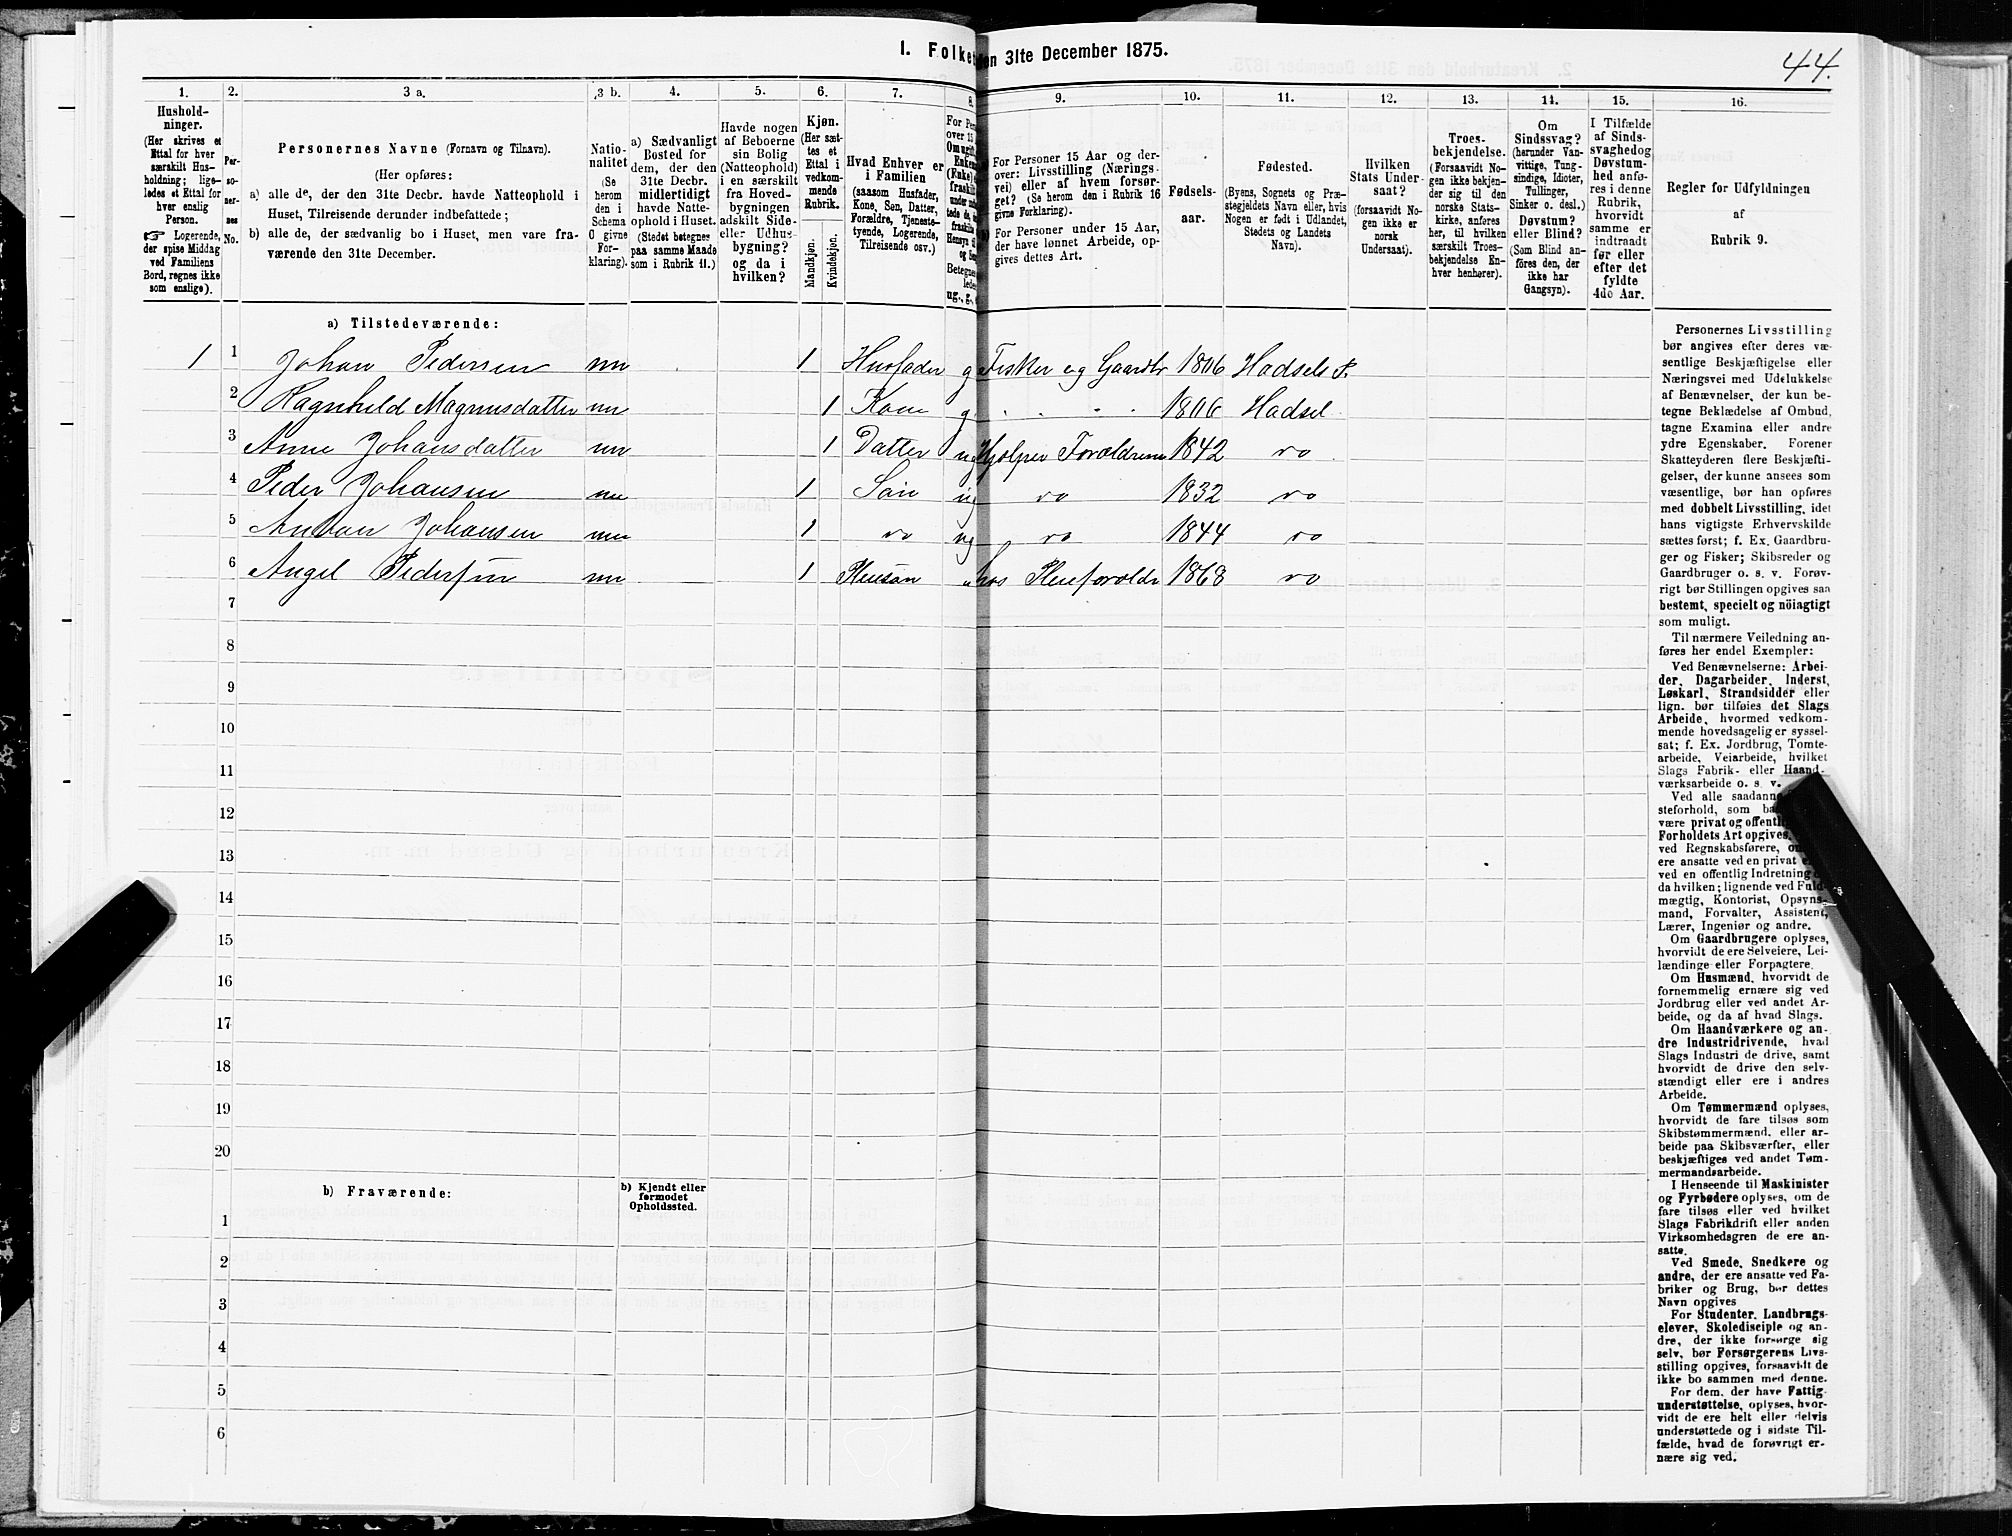 I. Folket
en 31te December 1875.
44.
1.
Hushold-
ninger.
(Her skrives et
Ettal for hver
særskilt Hus-
holdning; lige-
ledes et Ettal for
hver enslig
Person.
☞ Logerende,
der spise Middag
ved Familiens
Bord, regnes ikke
som enslige).
2.
Per-
so-
ner-
nes
No.
3 a.
Personernes Navne (Fornavn og Tilnavn).
(Her opføres:
a) alle de, der den 31te Decbr. havde Natteophold i
Huset, Tilreisende derunder indbefattede;
b) alle de, der sædvanlig bo i Huset, men vare fra-
værende den 31te December.
3 b.
Natio-
nalitet
(Se
herom
den i
Schema
O givne
For-
klaring).
4.
a) Sædvanligt
Bosted for
dem, der den
31te Decbr.
midlertidigt
havde Natte-
ophold i Huset.
(Stedet betegnes
paa samme Maade
som i Rubrik 11.)
5.
Havde nogen
af Beboerne
sin Bolig
(Natteophold)
i en særskilt
fra Hoved-
bygningen
adskilt Side-
eller Udhus-
bygning?
og da i
hvilken?
6.
Kjøn.
(Her sæt-
tes et
Ettal i
vedkom-
mende
Rubrik.
Mandkjøn.
Kvindekjøn.
7.
Hvad Enhver er
i Familien
(saasom Husfader,
Kone, Søn, Datter,
Forældre, Tjeneste-
tyende, Logerende,
Tilreisende osv.)
8.
For Pers
over 15
Omugift,
Enkem
(Enke)
fraskilt
Betegnes
ledes
ug., g.,
9.
For Personer 15 Aar og der-
over: Livsstilling (Nærings-
vei) eller af hvem forsør-
get? (Se herom den i Rubrik 16
givne Forklaring).
For Personer under 15 Aar,
der have lønnet Arbeide, op-
gives dettes Art.
10.
Fødsels-
aar.
11.
Fødested.
(Byens, Sognets og Præ-
stegjeldets Navn eller, hvis
Nogen er født i Udlandet,
Stedets og Landets
Navn).
12.
Hvilken
Stats Under-
saat?
(forsaavidt No-
gen ikke er
norsk
Undersaat).
13.
Troes-
bekjendelse.
(Forsaavidt No-
gen ikke bekjen-
der sig til den
norske Stats-
kirke, anføres
her, til hvilken
særskilt Troes-
bekjendelse En-
hver henhører).
14.
Om
Sindssvag?
(herunder Van-
vittige, Tung-
sindige, Idioter,
Tullinger,
Sinker o. desl.)
Døvstum?
eller Blind?
(Som Blind an-
føres den, der
ikke har
Gangsyn).
15.
I Tilfælde
af Sinds-
svaghed og
Døvstum-
hed anfø-
res i denne
Rubrik,
hvorvidt
samme er
indtraadt
før eller
efter det
fyldte
4de Aar.
16.
Regler for Udfyldningen
af
Rubrik 9.
a) Tilstedeværende:
1 1 Johan Pedersen nn 1 Husfader g Fisker og Gaardbr 1806 Hadsels P.
2 Ragnhild Magnusdatter nn 1 Kone g " " " 1806 Hadsel
3 Anne Johansdatter nn 1 Datter ug Hjelper Forældrene 1842 do
4 Peder Johansen nn 1 Søn ug do 1832 do
5 Anton Johansen nn 1 do ug do 1844 do
6 Angel Pedersen nn 1 Pleiesøn hos Pleieforældr 1868 do
7
8
9
10
11
12
13
14
15
16
17
18
19
20
b) Fraværende:
b) Kjendt eller
formodet
Opholdssted.
1
2
3
4
5
6
Personernes Livsstilling
bør angives efter deres væ-
sentlige Beskjæftigelse eller
Næringsvei med Udelukkelse
af Benævnelser, der kun be-
tegne Beklædelse af Ombud,
tagne Examina eller andre
ydre Egenskaber. Forener
Skatteyderen flere Beskjæfti-
gelser, der kunne ansees som
væsentlige, bør han opføres
med dobbelt Livsstilling, idet
hans vigtigste Erhvervskilde
sættes først; f. Ex. Gaardbru-
ger og Fisker; Skibsreder og
Gaardbruger o. s. v. Forøv-
rigt bør Stillingen opgives saa
bestemt, specielt og nöiagtigt
som muligt.
Til nærmere Veiledning an-
føres her endel Exempler:
Ved Benævnelserne: Arbei-
der, Dagarbeider, Inderst,
Løskarl, Strandsidder eller
lign. bør tilføies det Slags
Arbeide, hvormed vedkom-
mende hovedsagelig er syssel-
sat; f. Ex. Jordbrug, Tomte-
arbeide, Veiarbeide, hvilket
Slags Fabrik- eller Haand-
værksarbeide o. s. v.
Ved alle saadanne
steforhold, som ba
være privat og offentli
Forholdets Art opgives,
ved Regnskabsførere, om
ere ansatte ved en privat e
ved en offentlig Indretning
da hvilken; lignende ved Fuld-
mægtig, Kontorist, Opsyns-
mand, Forvalter, Assistent,
Lærer, Ingeniør og andre.
Om Gaardbrugere oplyses,
hvorvidt de ere Selveiere, Lei-
lændinge eller Forpagtere.
Om Husmænd, hvorvidt de
fornemmelig ernære sig ved
Jordbrug eller ved andet Ar-
beide, og da af hvad Slags.
Om Haandværkere og an-
dre Industridrivende, hvad
Slags Industri de drive, samt
hvorvidt de drive den selv-
stændigt eller ere i andres
Arbeide.
Om Tømmermænd oplyses,
hvorvidt de fare tilsøs som
Skibstømmermænd, eller ar-
beide paa Skibsværfter, eller
beskjæftiges ved andet Tøm-
mermandsarbeide.
I Henseende til Maskinister
og Fyrbødere oplyses, om de
fare tilsøs eller ved hvilket
Slags Fabrikdrift eller anden
Virksomhedsgren de ere an-
satte.
Ved Smede, Snedkere og
andre, der ere ansatte ved Fa-
briker og Brug, bør dettes
Navn opgives
For Studenter, Landbrugs-
elever, Skoledisciple og an-
dre, der ikke forsørge sig
selv, bør Forsørgerens Livs-
stilling opgives, forsaavidt de
ikke bo sammen med denne.
For dem, der have Fattig-
understøttelse, oplyses, hvor-
vidt de ere helt eller delvis
understøttede og i sidste Til-
fælde, hvad de forøvrigt er-
nære sig ved.